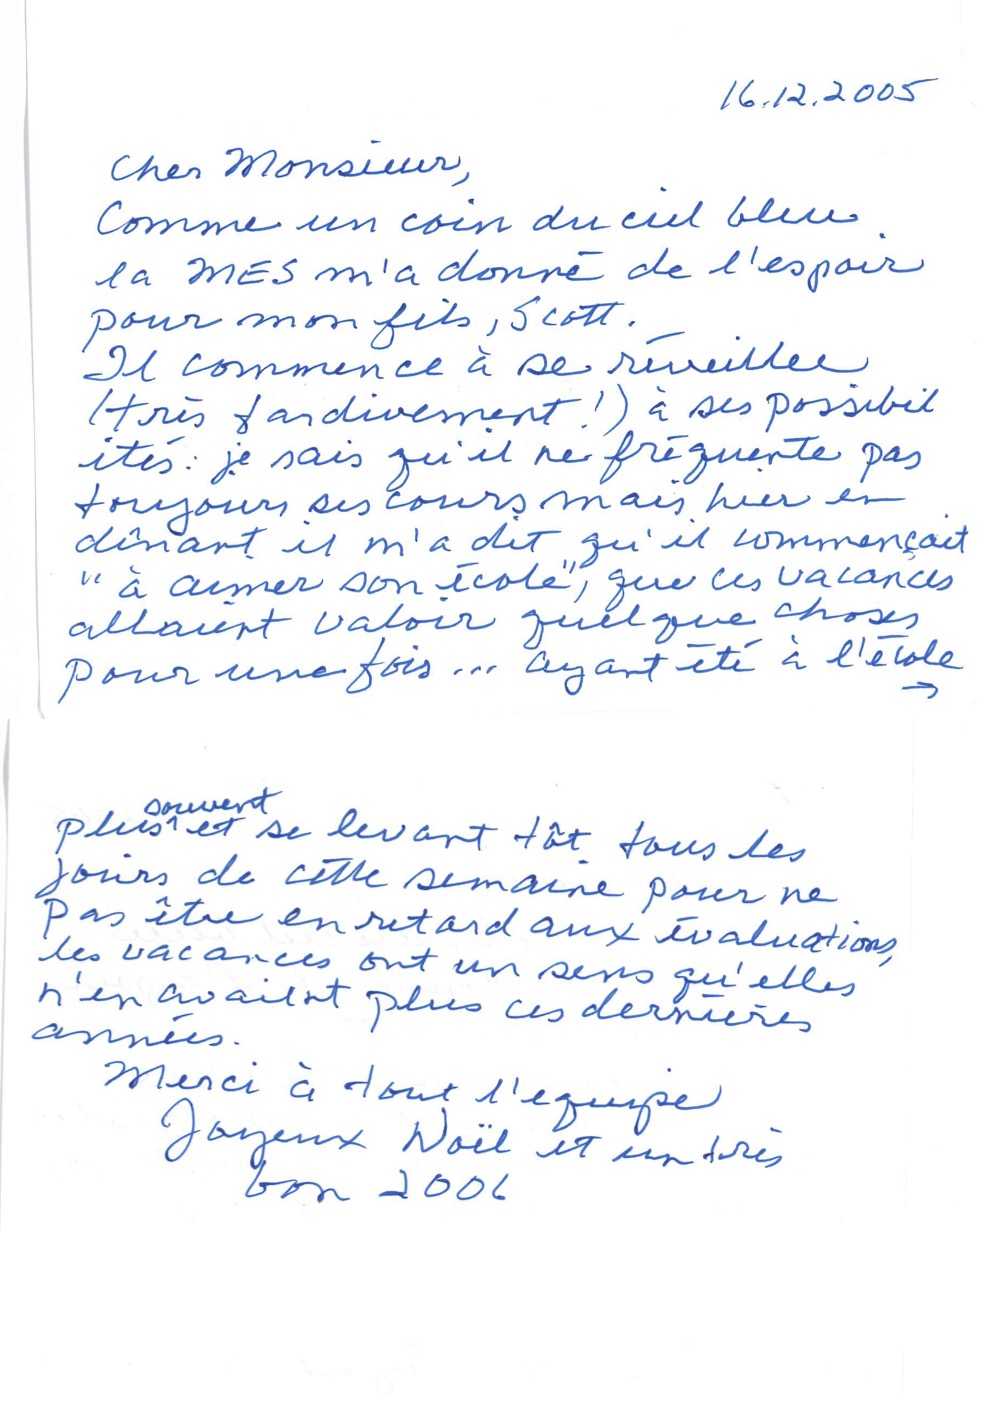 16.12.2005
Cher Monsieur,
Comme un coin du ciel bleu
la MES m'a donné de l'espoir
pour mon fils, Scott.
Il commence à se réveillee
(très tardivement !) à ses possibil
ités: je sais qu'il ne fréquente pas
toujours ses cours mais hier en
dînant il m'a dit qu'il commençait
"à aimer son école", que ces vacances
allaient valoir quelque choses
pour une fois... ayant été à l'école
→
plus souvent et se levant tôt tous les
jours de cette semaine pour ne
pas être en retard aux évaluations,
les vacances ont un sens qu'elles
n'en avaient plus ces dernières
années.
Merci à tout l'equipe
Joyeux Noël et un très
bon 2006